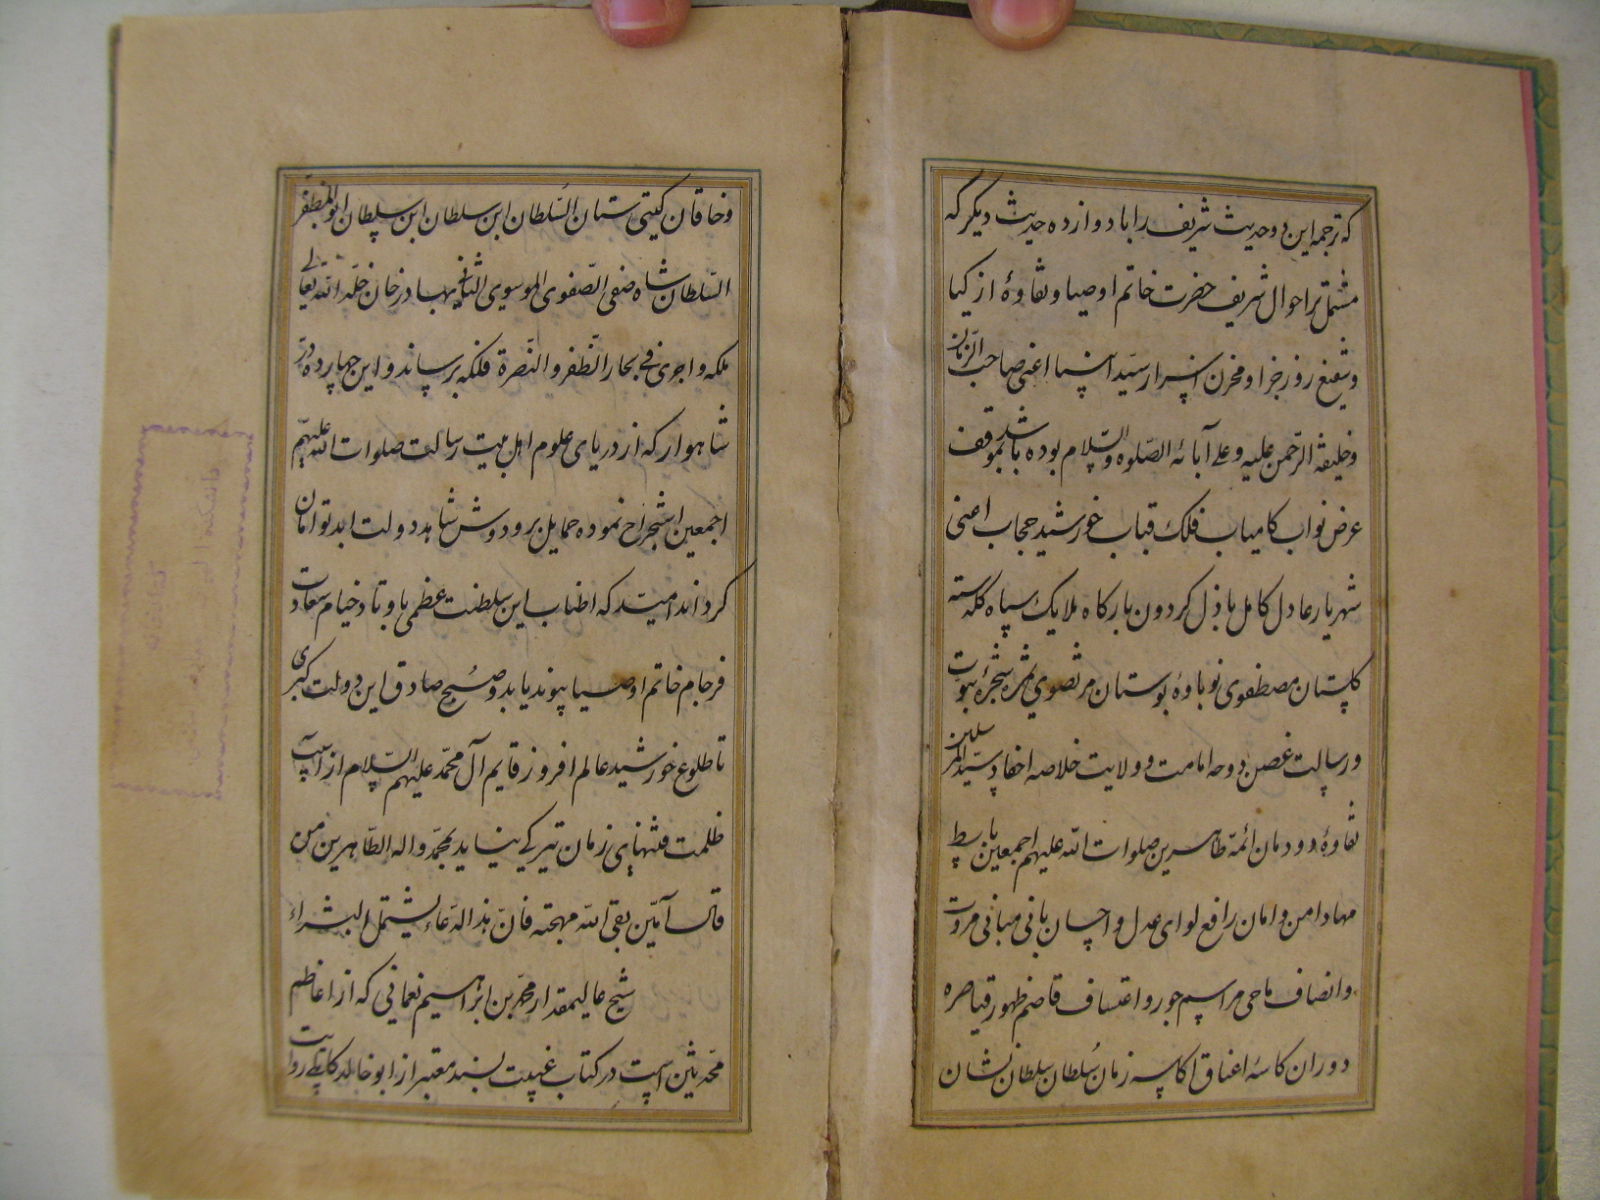 که ترجمه این دو حدیث شریف را با دوازده حدیث دیگر که
مشتمل بر احوال شریف حضرت خاتم اوصیا و نقاوهٔ ازکیا
و شفیع روز جزا و مخزن اسرار سید انبیا اعنی صاحب الزمان
و خلیفة الرّحمن علیه و علی آبائه الصّلوة والسّلام بوده باشد بموقف
عرض نواب کامیاب فلک قباب خورشید حجاب اعنی
شهریار عادل کامل باذل کردون بارکاه ملایک سپاه کلدسته
کلستان مصطفوی نوباوهٔ بوستان مرتضوی ثمره شجرهٔ نبوت
و رسالت غصن دوحه امامت و ولایت خلاصه احفاد سیّد المرسلین
نقاوهٔ دودمان ائمّهٔ طاهرین صلوات الله علیهم اجمعین باسط
مهاد امن و امان رافع لوای عدل و احسان بانی مبانی مروت
و انصاف ماحی مراسم جور و اعتساف قاصم ظهور قیاصره
دوران کاسهٔ اعناق اکاسره زمان سُلطان سلطان نشان
و خاقان کیتی استان السّلطان ابن سلطان ابن سلطان ابوالمظفّر
السّلطان شاه صفی الصّفوی الموسوی الثانی بهادر خان خلّد الله تعالی
ملکه و اجری فی بحار الظّفر و النّصرة فلکه برساند و این چهارده درّ
شاهوار که از دریای علوم اهل بیت رسالت صلوات الله علیهم
اجمعین استخراج نموده حمایل بر و دوش شاهد دولت ابد توامان
کرداند امید که اطناب این سلطنت عظمی باوتاد خیام سعادت
فرجام خاتم اوصیا پیوند یابد و صُبح صادق این دولت کبری
تا طلوع خورشید عالم افروز قایم آل محمّد علیهم السّلام از آسیب
ظلمت فتنهای زمان تیرکی نیابد بمحمّد واله الطّاهرین من
قال آمین بقی الله مهجته فانّ هذا الدّعاء یشتمل البشراء
شیخ عالیمقدار محمّد بن ابراهیم نعمانی که از اعاظم
محدّثین است در کتاب غیبت بسند معتبر از ابو خالد کابلی روایت